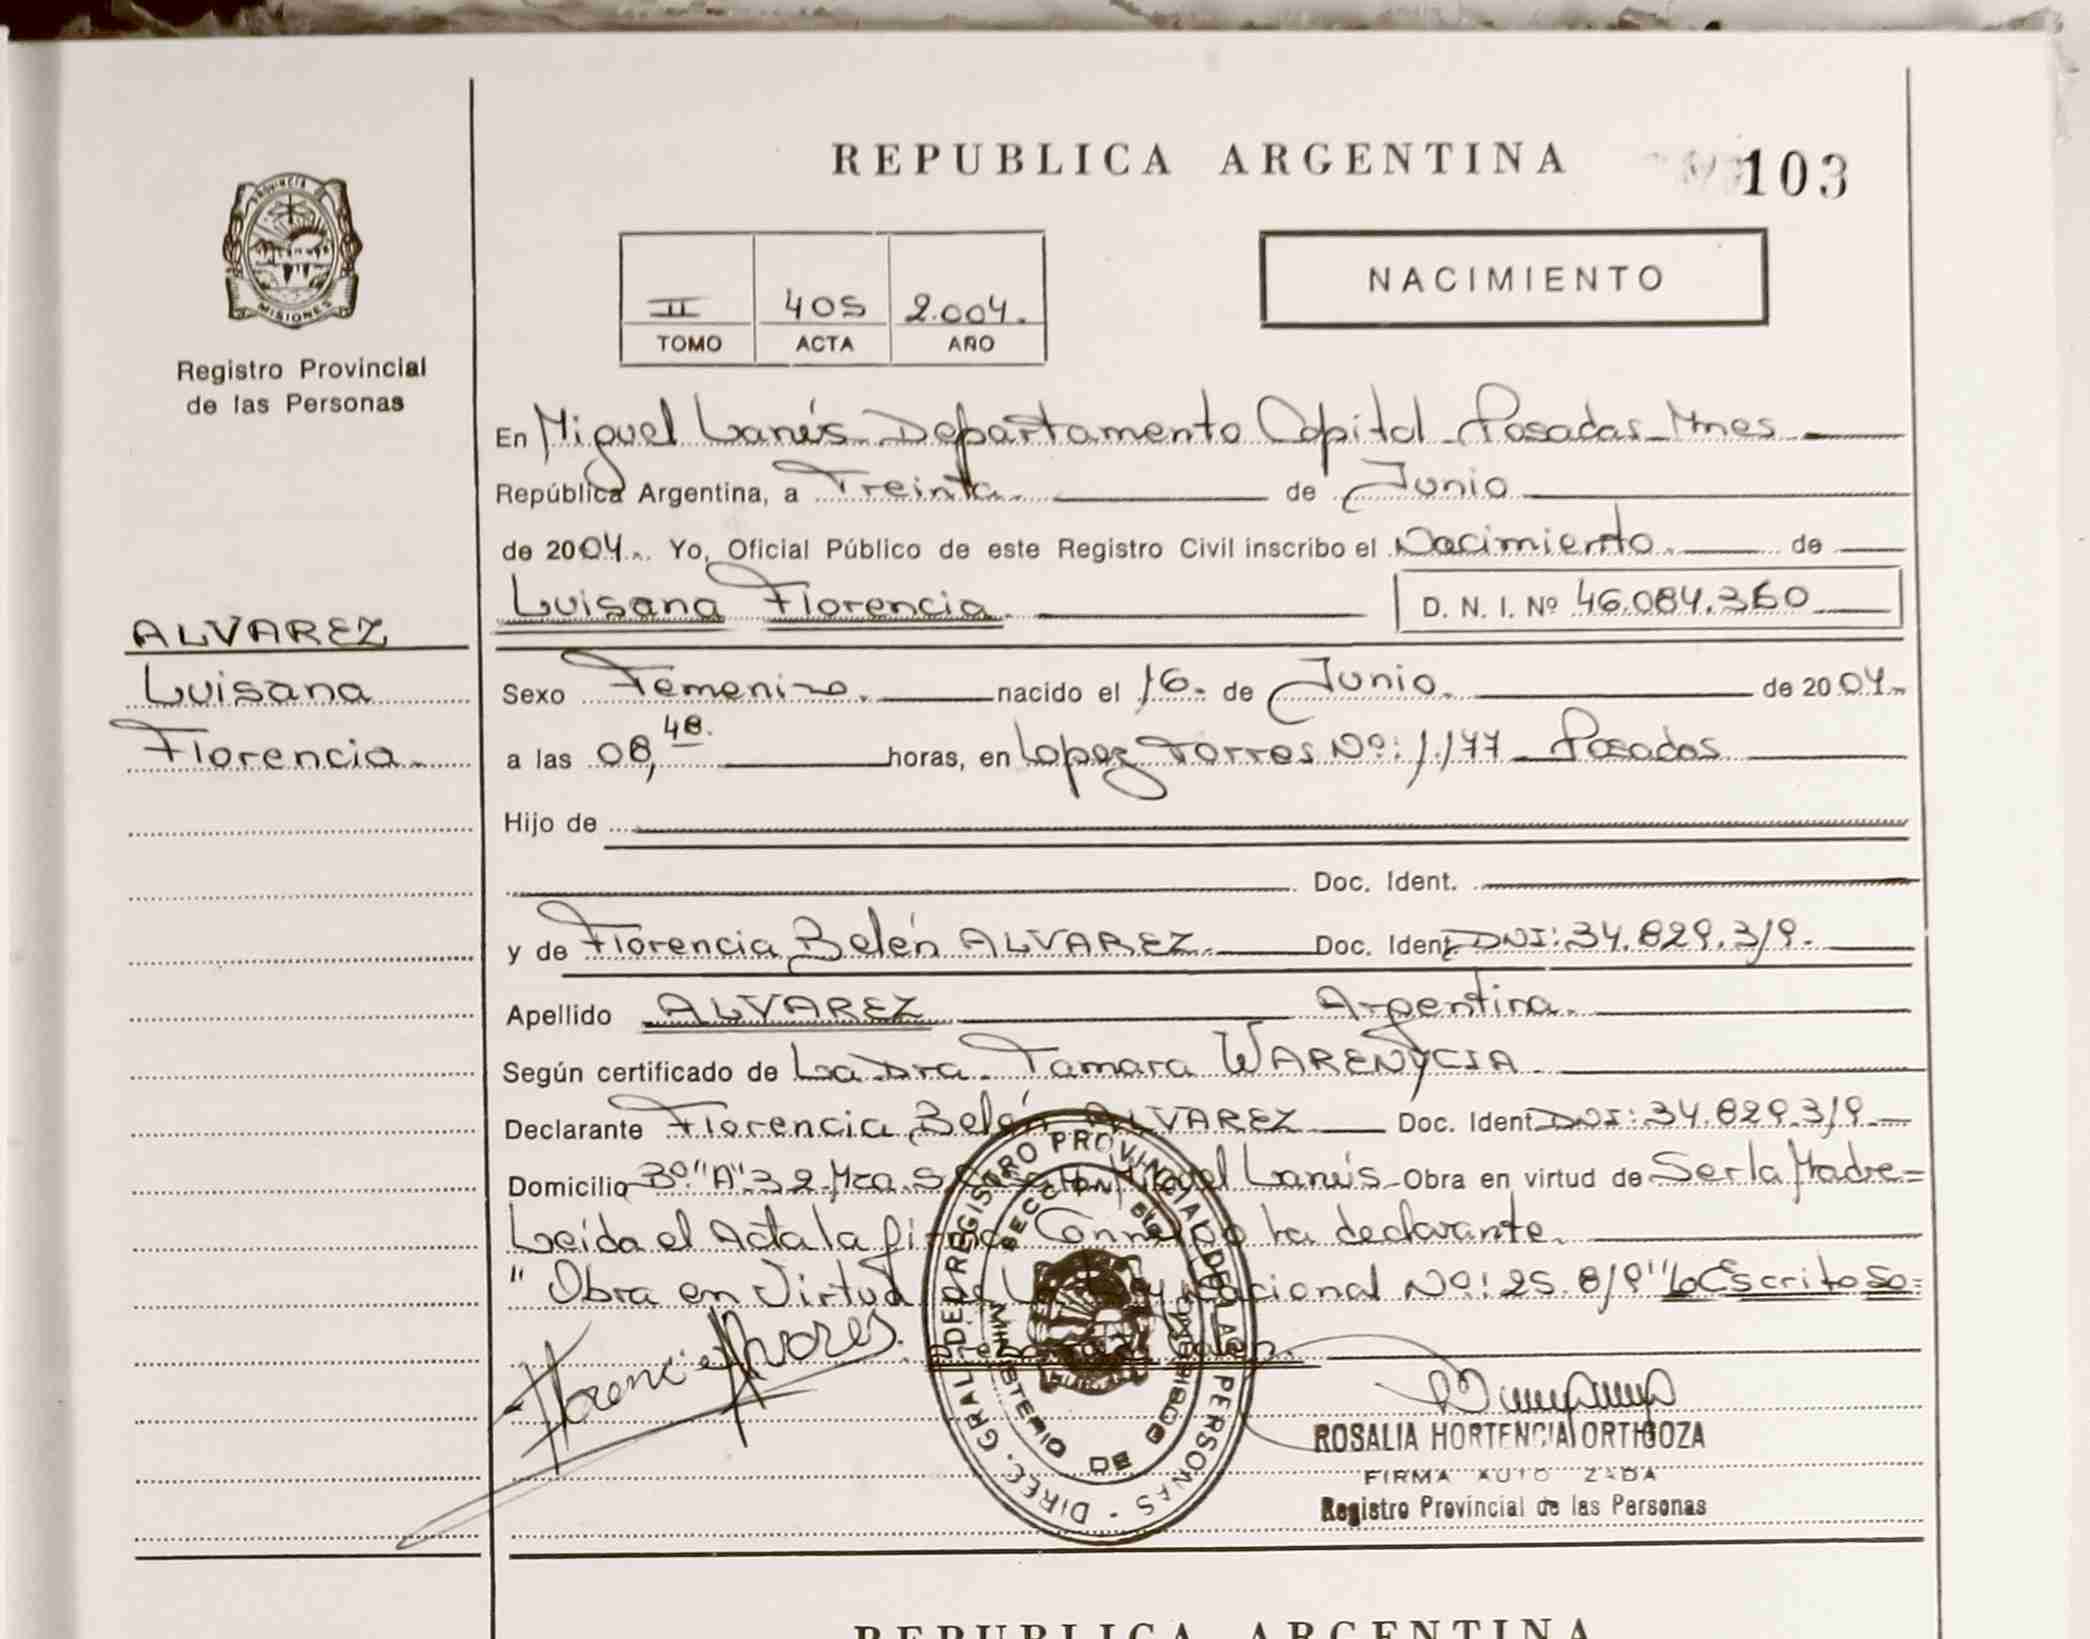 REPUBLICA ARGENTINA
103
PROVINCIA DE
MISIONES
Registro Provincial
de las Personas
II 405 2.004.
TOMO ACTA AÑO
NACIMIENTO
En Miguel Lanús Departamento Capital Posadas Mnes
República Argentina, a Treinta. de Junio
de 2004. Yo, Oficial Público de este Registro Civil inscribo el Nacimiento. de
Luisana Florencia. D. N. I. Nº 46.084.360
ALVAREZ
Luisana
Florencia.
Sexo Femenino. nacido el 16. de Junio. de 2004.
a las 08,48. horas, en Lopez Torres Nº: 1.177 Posadas
Hijo de
Doc. Ident.
y de Florencia Belén ALVAREZ. Doc. Ident. DNI: 34.829.319.
Apellido ALVAREZ Argentina.
Según certificado de La Dra. Tamara WARENYCIA.
Declarante Florencia Belén ALVAREZ Doc. Ident. DNI: 34.829.319.
Domicilio Bº "A" 3 2 Mza. S Miguel Lanús Obra en virtud de Ser la Madre=
Leida el Acta la firma Conmigo la declarante.
"Obra en Virtud de la Ley Nacional Nº: 25.819" Lo Escrito So=
Vale.
Florencia Alvares.
DIREC. GRAL. DE REGISTRO PROVINCIAL DE LAS PERSONAS
MINISTERIO DE GOBIERNO
ROSALIA HORTENCIA ORTIGOZA
FIRMA AUTORIZADA
Registro Provincial de las Personas
REPUBLICA ARGENTINA